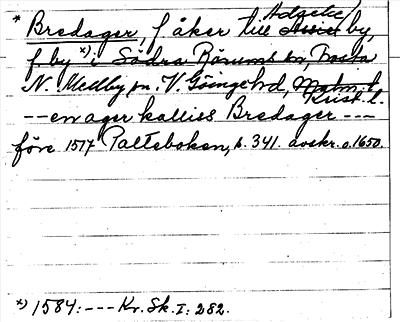 * Bredager, f. åker till Adzelie/ by,
f. by *) i Södra Rörums sn, Frosta
N. Mellby sn. V. Göinge hd, Malm. l.
Krist. l.
-- en ager kalliss Bredager ---
före 1517 Palteboken, s. 341. avskr. o. 1650.
*) 1584: --- Kr. Sk. I: 282.